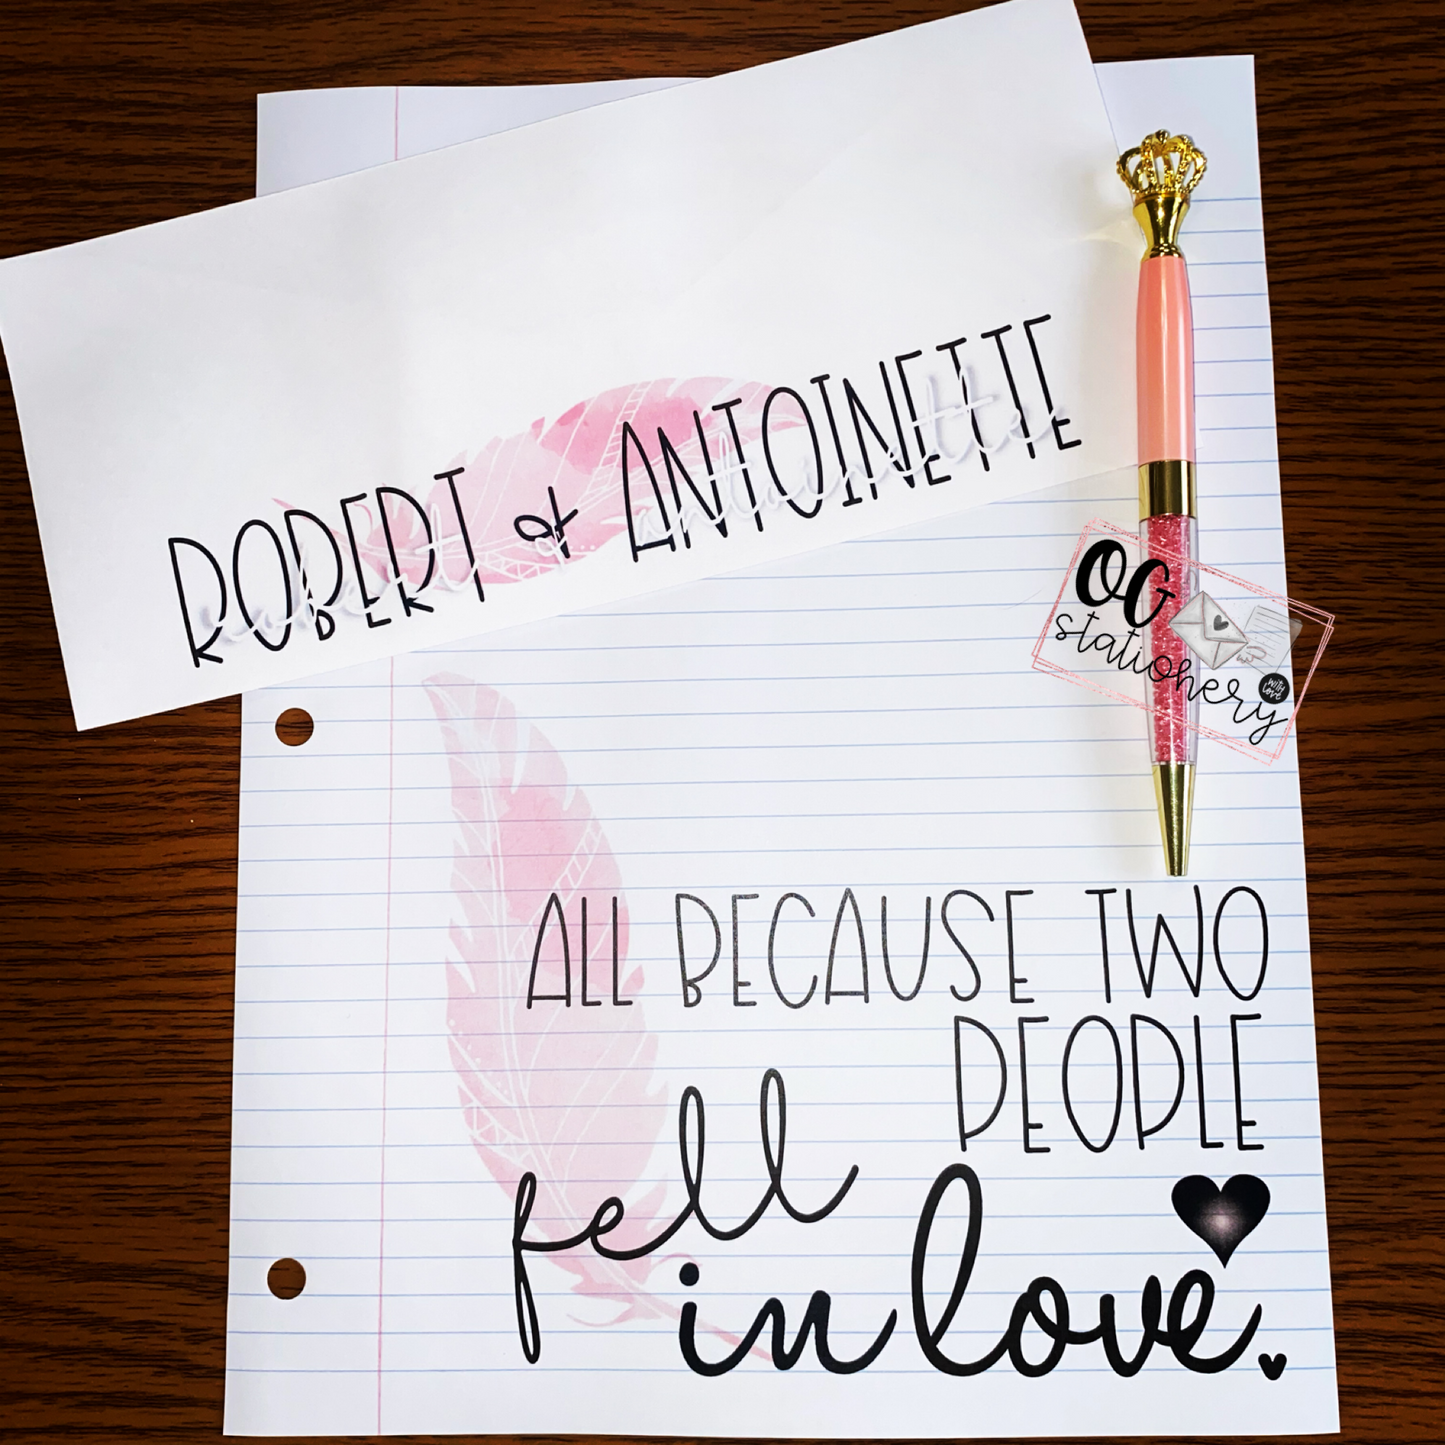 ROBERT & ANTOINETTE
robert & antoinette
OG
stationery
WITH
LOVE
ALL BECAUSE TWO
PEOPLE
fell
in love.